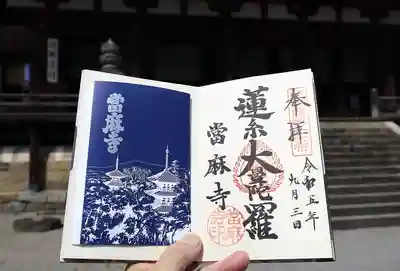 奉拝
令和五年
九月三日
蓮糸大曼陀羅
當麻寺
當麻寺